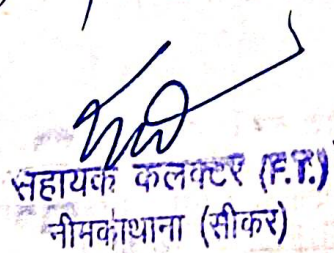 सहायक कलक्टर (F.T.)
नीमकाथाना (सीकर)